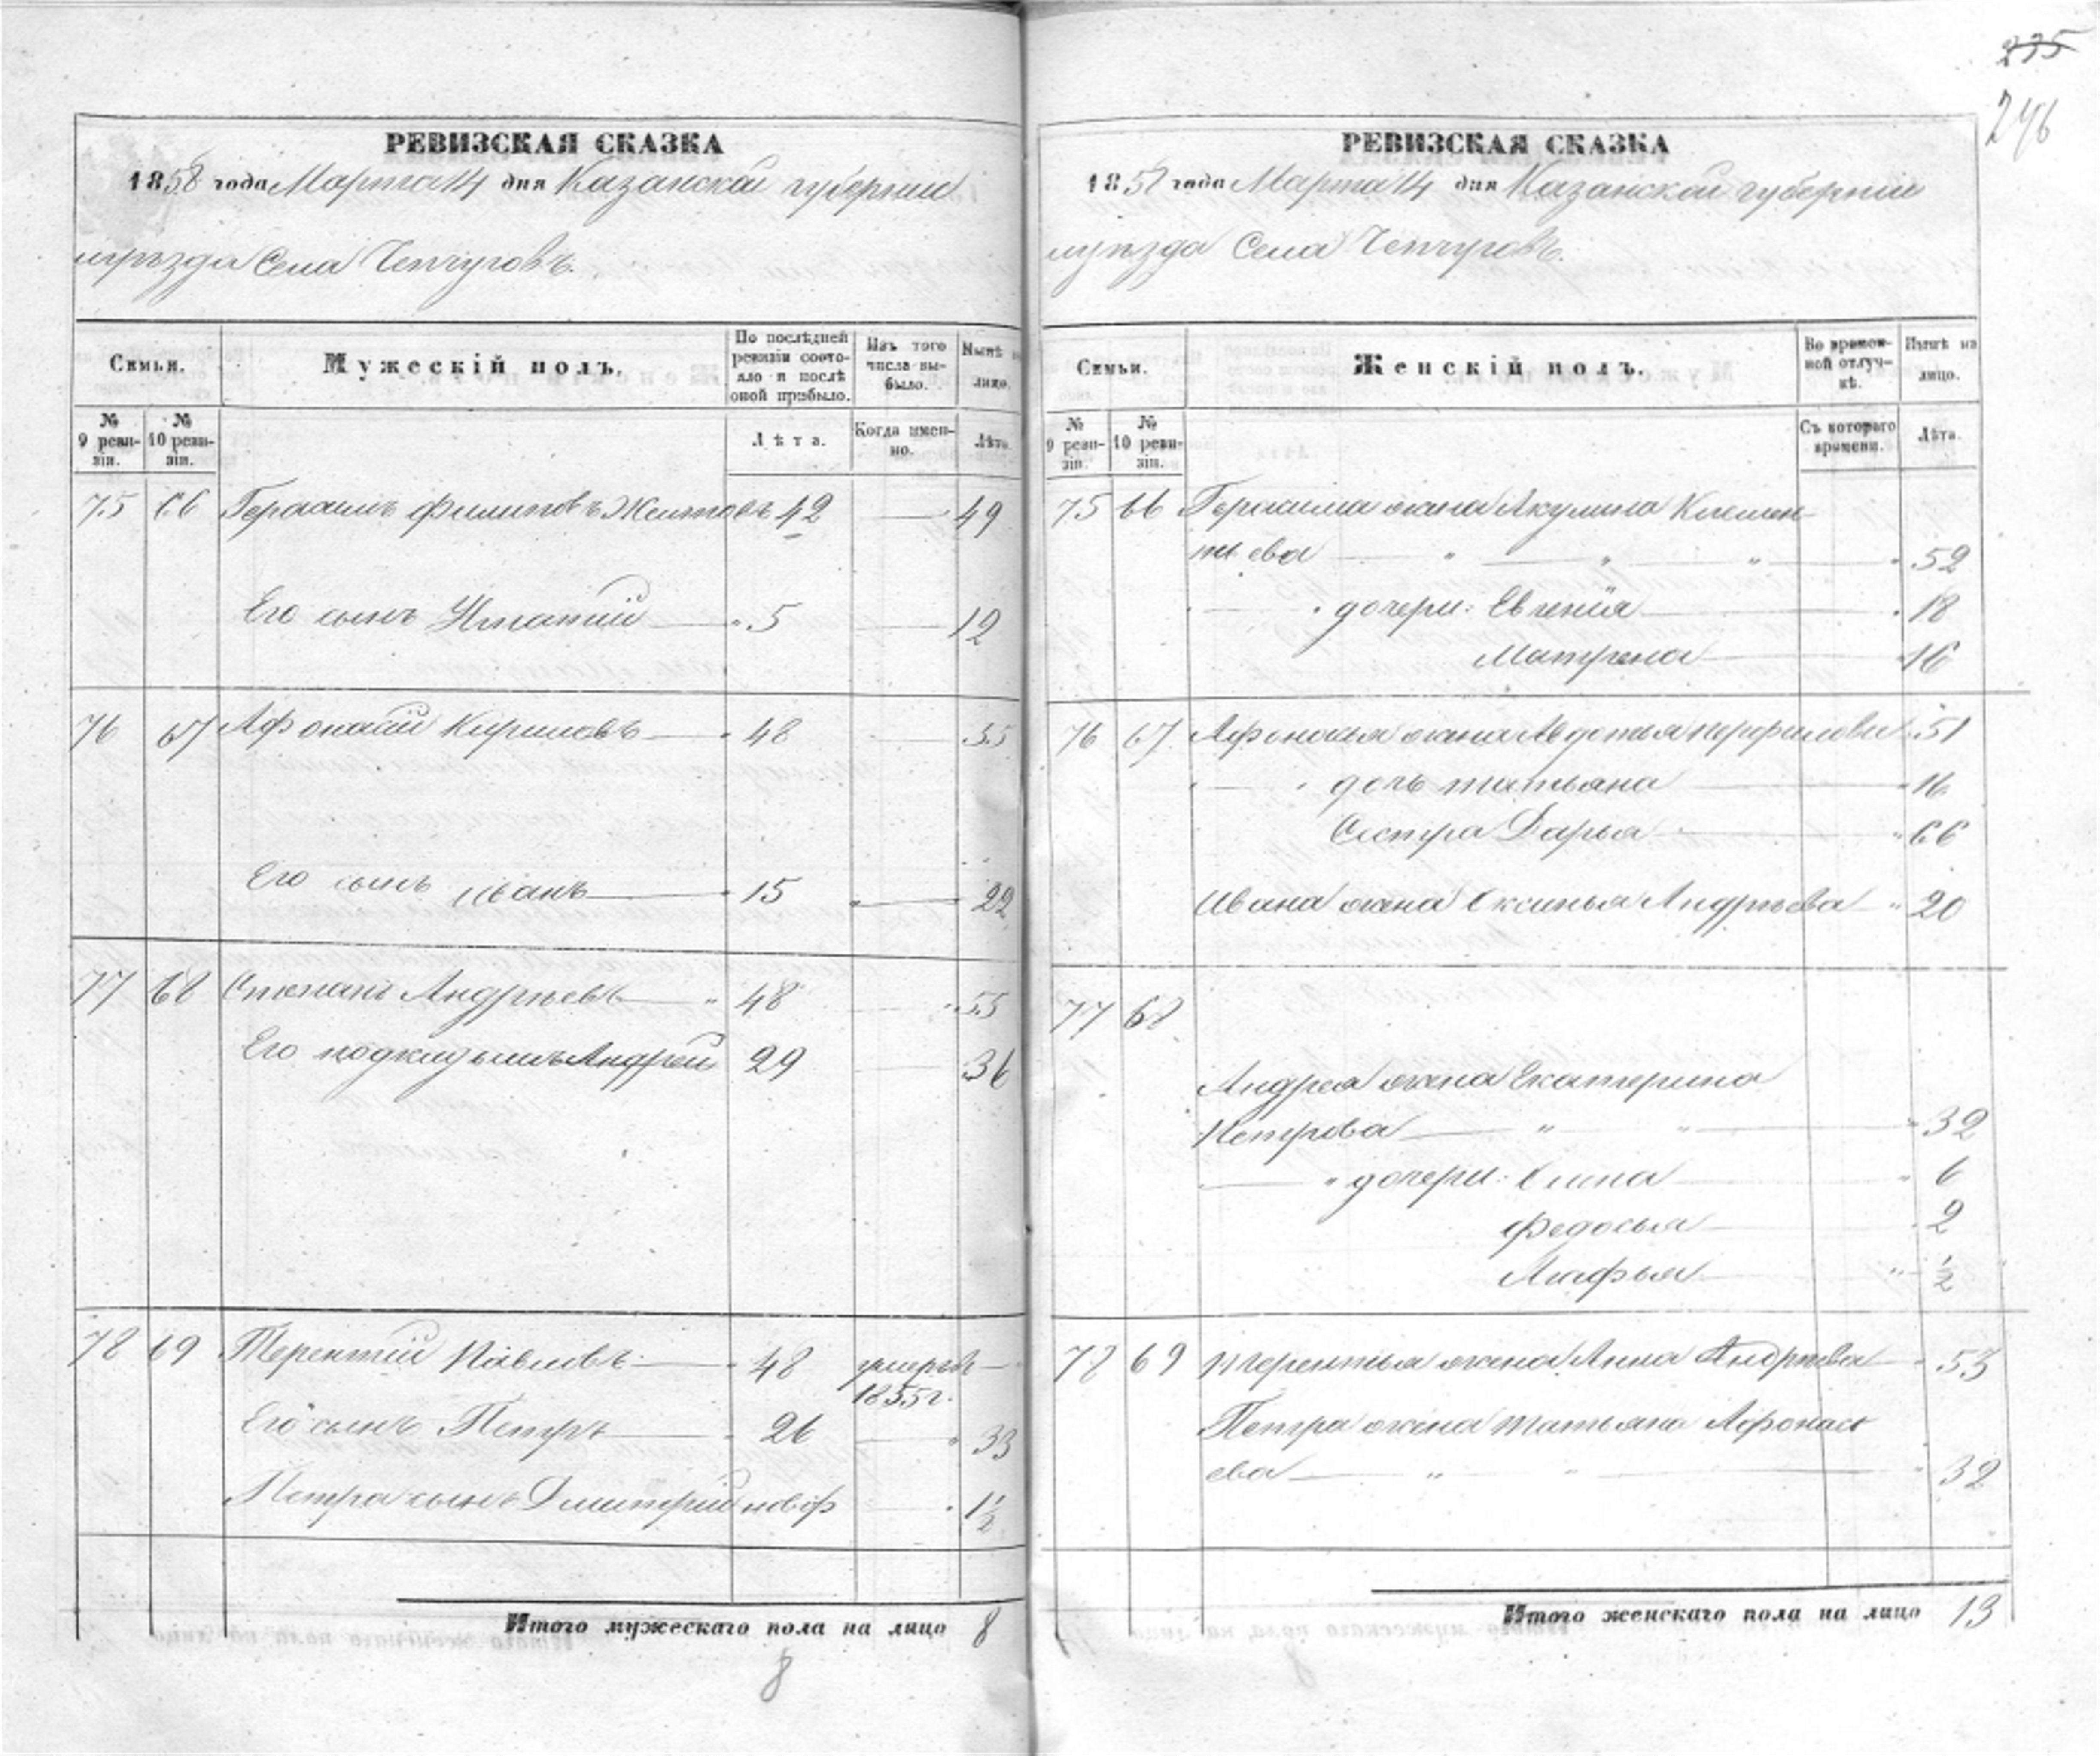 235
246
РЕВИЗСКАЯ СКАЗКА
1858 года Марта 14 дня Казанской губернии
уѣзда Села Чепчуговъ.
Семьи.
Мужескій полъ.
По послѣдней ревизіи состояло и послѣ оной прибыло.
Изъ того числа выбыло.
Нынѣ на лицо.
№ 9 ревизіи.
№ 10 ревизіи.
Лѣта.
Когда именно.
Лѣта.
75 66 Герасимъ Филиповъ Желтовъ 42 49
Его сынъ Игнатій 5 12
76 67 Афонасій Кириловъ 48 55
Его сынъ Иванъ 15 22
77 68 Степанъ Андрѣевъ 48 55
Его подкидышъ Андрей 29 36
78 69 Терентий Павловъ 48 умеръ
1855 г.
Его сынъ Петръ 26 33
Петра сынъ Дмитрій новор 1½
Итого мужескаго пола на лицо 8
8
РЕВИЗСКАЯ СКАЗКА
1858 года Марта 14 дня Казанской губернии
уѣзда Села Чепчуговъ.
Семьи.
Женскій полъ.
Во временной отлучкѣ.
Нынѣ на лицо.
№ 9 ревизіи.
№ 10 ревизіи.
Съ котораго времени.
Лѣта.
75 66 Герасима жена Акулина Клемен
тьева 52
дочери: Евгенія 18
Матрена 16
76 67 Афонасья жена Авдотья Перфилова 51
дочь Татьяна 16
Сестра Дарья 66
Ивана жена Аксинья Андрѣева 20
77 68
Андрея жена Екатерина
Петрова 32
дочери: 6
Федосья 2
Агафья ½
78 69 Терентья жена Анна Андрѣева 53
Петра жена Татьяна Афонась
ева 32
Итого женскаго пола на лицо 13